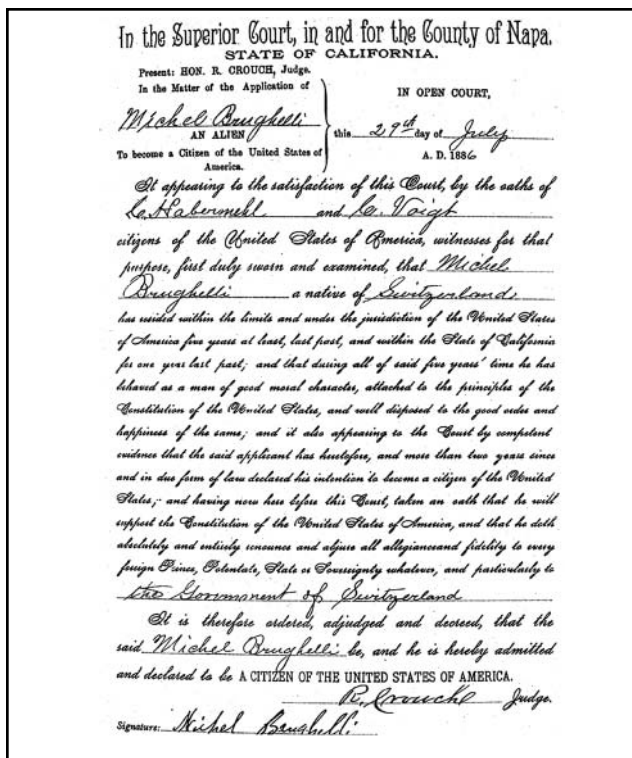 In the Superior Court, in and for the County of Napa.
STATE OF CALIFORNIA.
Present: HON. R. CROUCH, Judge.
In the Matter of the Application of
Michel Brughelli
AN ALIEN
To become a Citizen of the United States of
America.
IN OPEN COURT,
this 29th day of July
A. D. 1886
It appearing to the satisfaction of this Court, by the oaths of
C. Habermehl and C. Voigt
citizens of the United States of America, witnesses for that
purpose, first duly sworn and examined, that Michel
Brughelli a native of Switzerland
has resided within the limits and under the jurisdiction of the United States
of America five years at least, last past, and within the State of California
for one year last past; and that during all of said five years' time he has
behaved as a man of good moral character, attached to the principles of the
Constitution of the United States, and well disposed to the good order and
happiness of the same; and it also appearing to the Court by competent
evidence that the said applicant has heretofore, and more than two years since
and in due form of law declared his intention to become a citizen of the United
States; and having now here before this Court, taken an oath that he will
support the Constitution of the United States of America, and that he doth
absolutely and entirely renounce and abjure all allegiance and fidelity to every
foreign Prince, Potentate, State or Sovereignty whatever, and particularly to
the Government of Switzerland
It is therefore ordered, adjudged and decreed, that the
said Michel Brughelli be, and he is hereby admitted
and declared to be A CITIZEN OF THE UNITED STATES OF AMERICA.
R. Crouch Judge.
Signature: Michel Brughelli